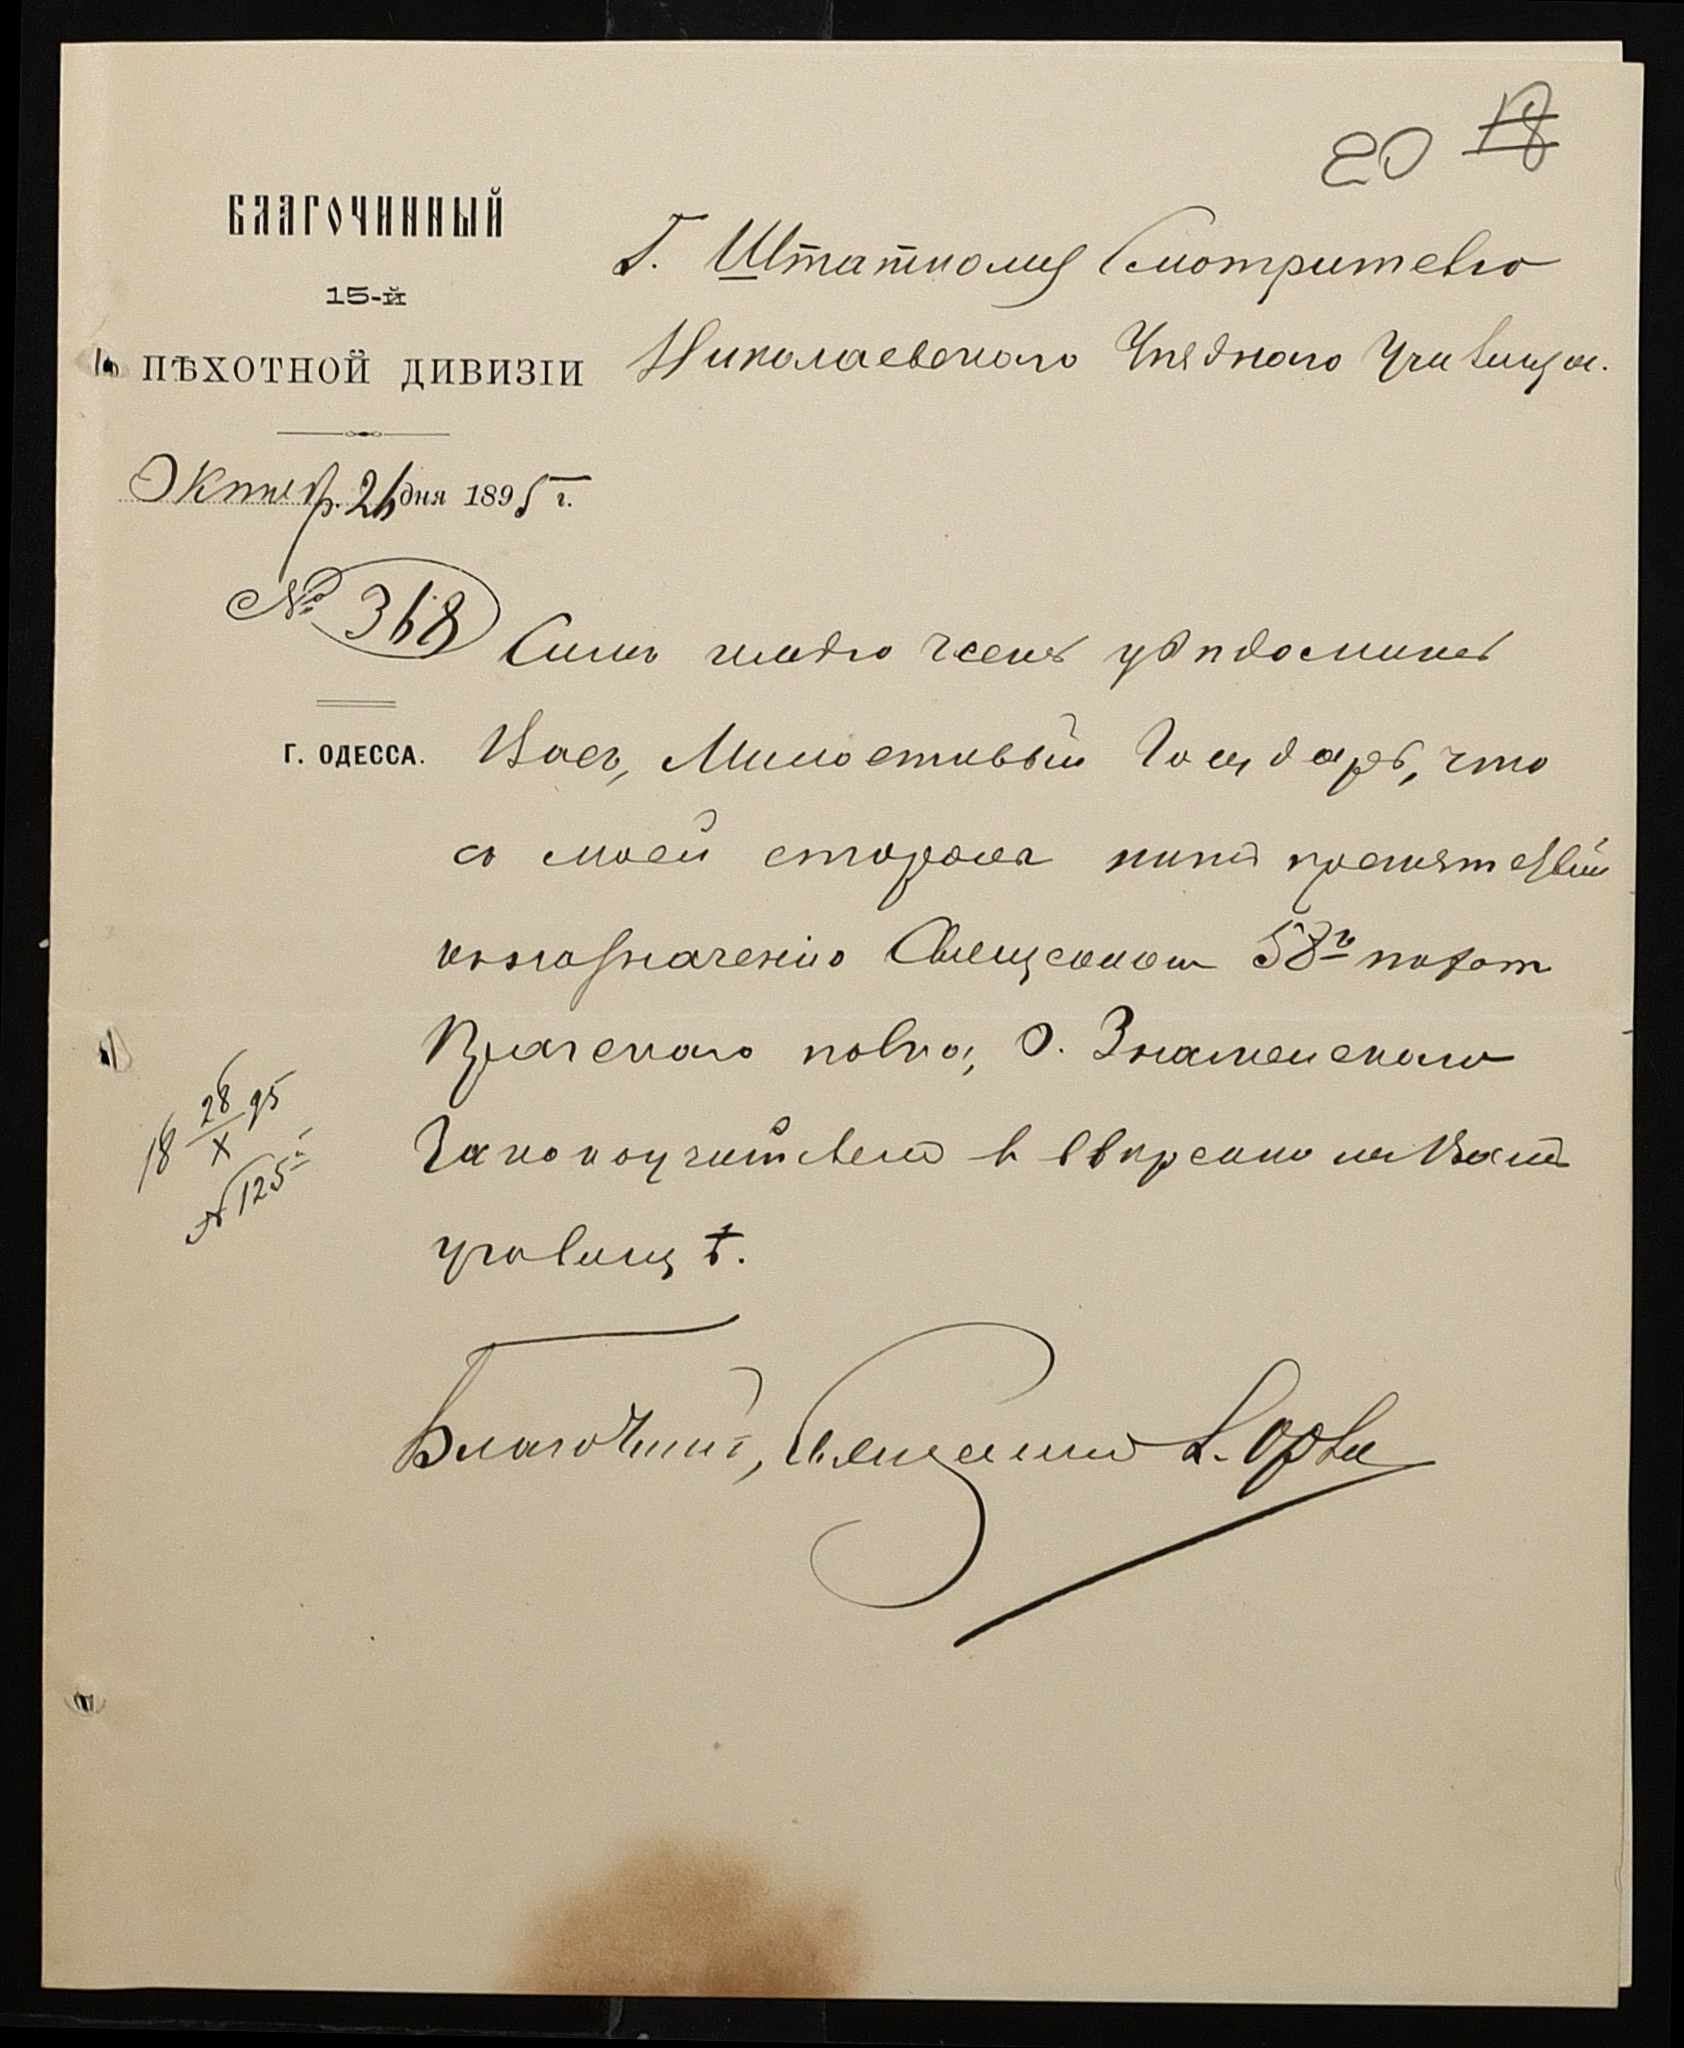 20 18
БЛАГОЧИННЫЙ
15-й
ПѢХОТНОЙ ДИВИЗІИ
Октябр. 26 дня 1895 г.
№ 368
Г. ОДЕССА.
Г. Штатному Смотрителю
Николаевского Уѣзднаго Училища.
Симъ имѣю честь увѣдомить
Васъ, Милостивый Государь, что
со моей стороны нѣтъ препятствій
къ назначенію Священника 58го пѣхот
Прагскаго полка, О. Знаменскаго
Законоучителемъ в ввѣренномъ Вамъ
училищѣ.
Благочинный, Священникъ
18 28/X 95
№ 125